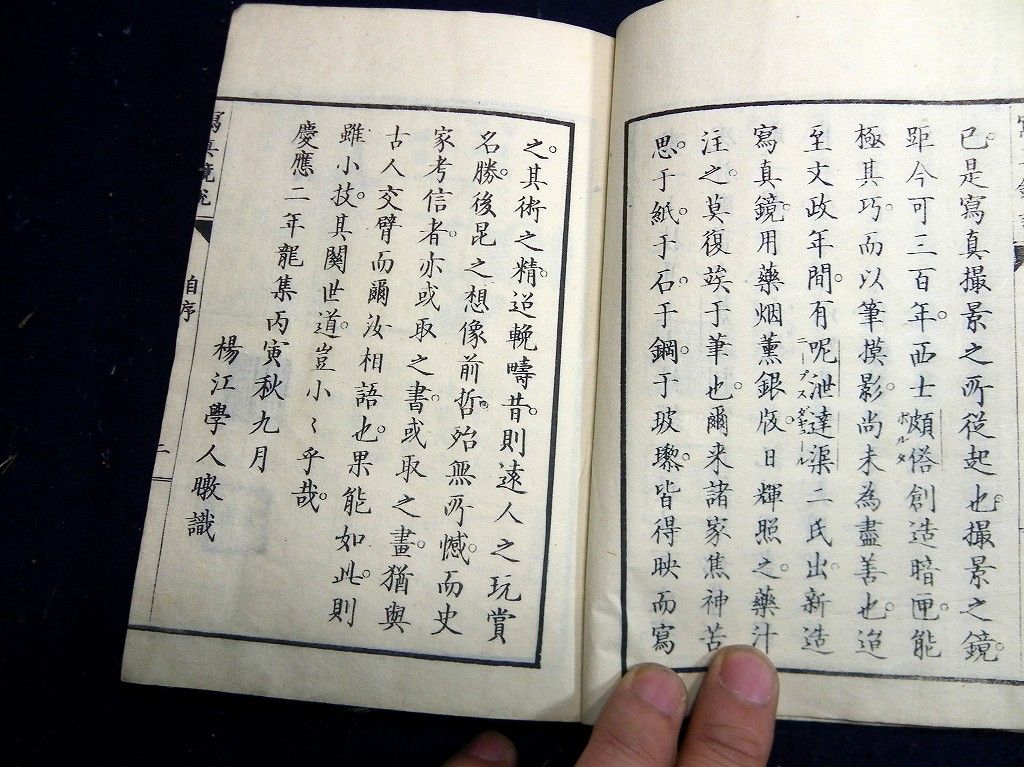 已是寫真撮景之所従起也。撮景之鏡。
距今可三百年。西士頗偦創造暗匣。能
ポルタ
極其巧。而以筆摸影。尚未為盡善也。迨
至文政年間。有呢泄達渠二氏出。新造
ニープス ダギュール
寫真鏡。用藥烟薰銀版。日輝照之。藥汁
注之。莫復竢于筆也。爾来諸家焦神苦
思。于紙。于石。于鋼。于玻瓈。皆得映而寫
之。其術之精。迢輓疇昔。則遠人之玩賞
名勝。後昆之想像前哲。殆無所憾。而史
家考信者。亦或取之書。或取之畫。猶與
古人交臂而爾汝相語也。果能如此。則
雖小技。其関世道。豈小〻乎哉。
慶應二年龍集丙寅秋九月
楊江學人暾識
寫真鏡説
自序
二